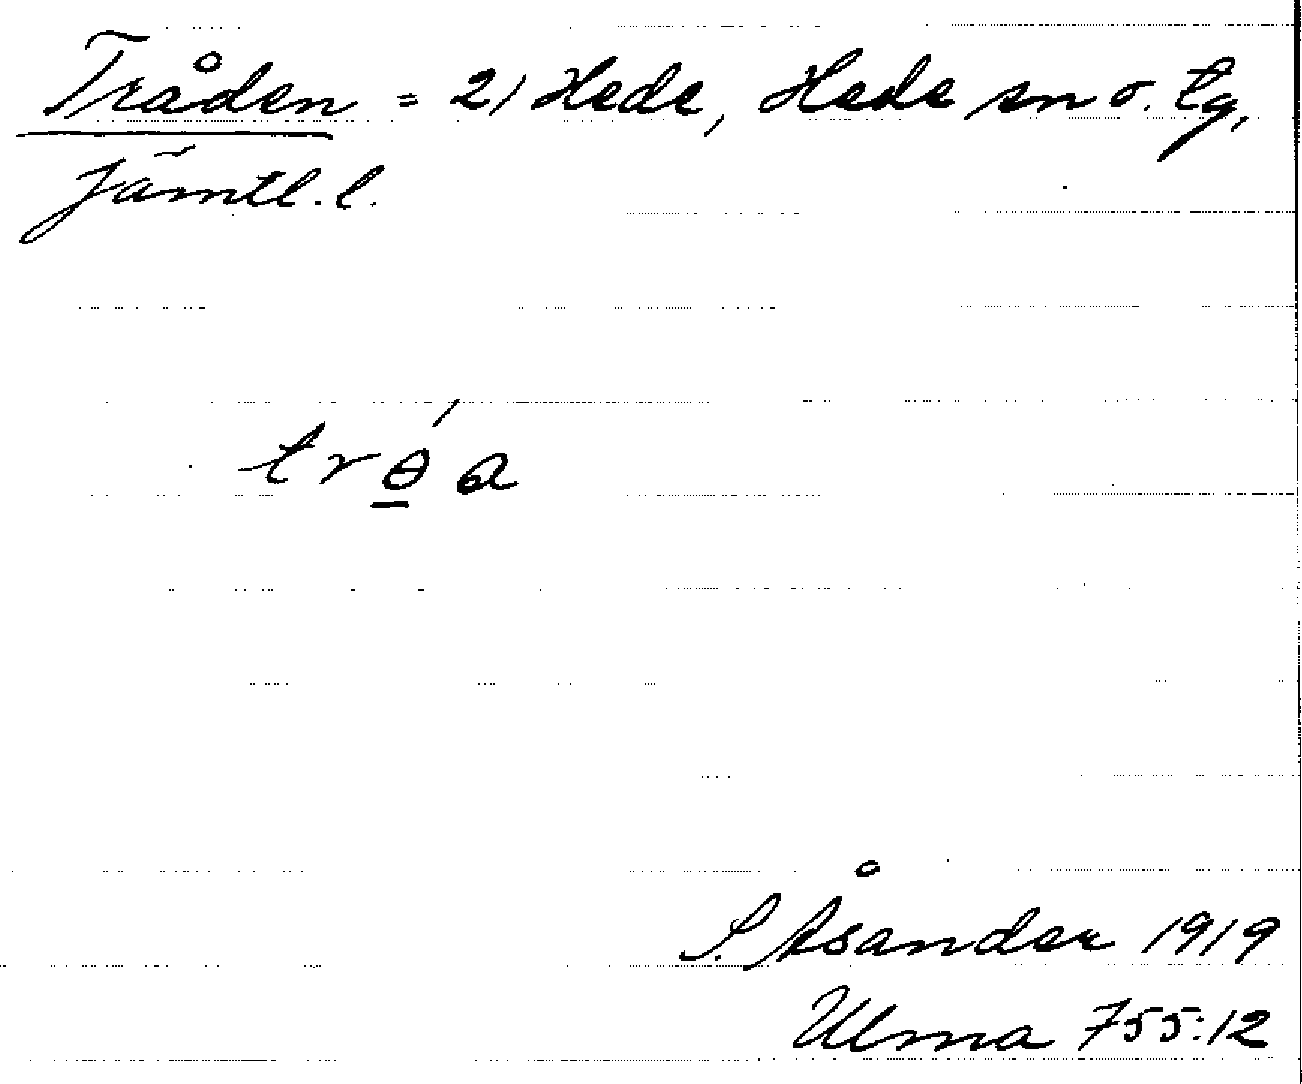 Tråden = 2) Hede, Hede sn o. tg,
Jämtl. l.
trɵ̲́a
S. Åsander 1919
Ulma 755:12